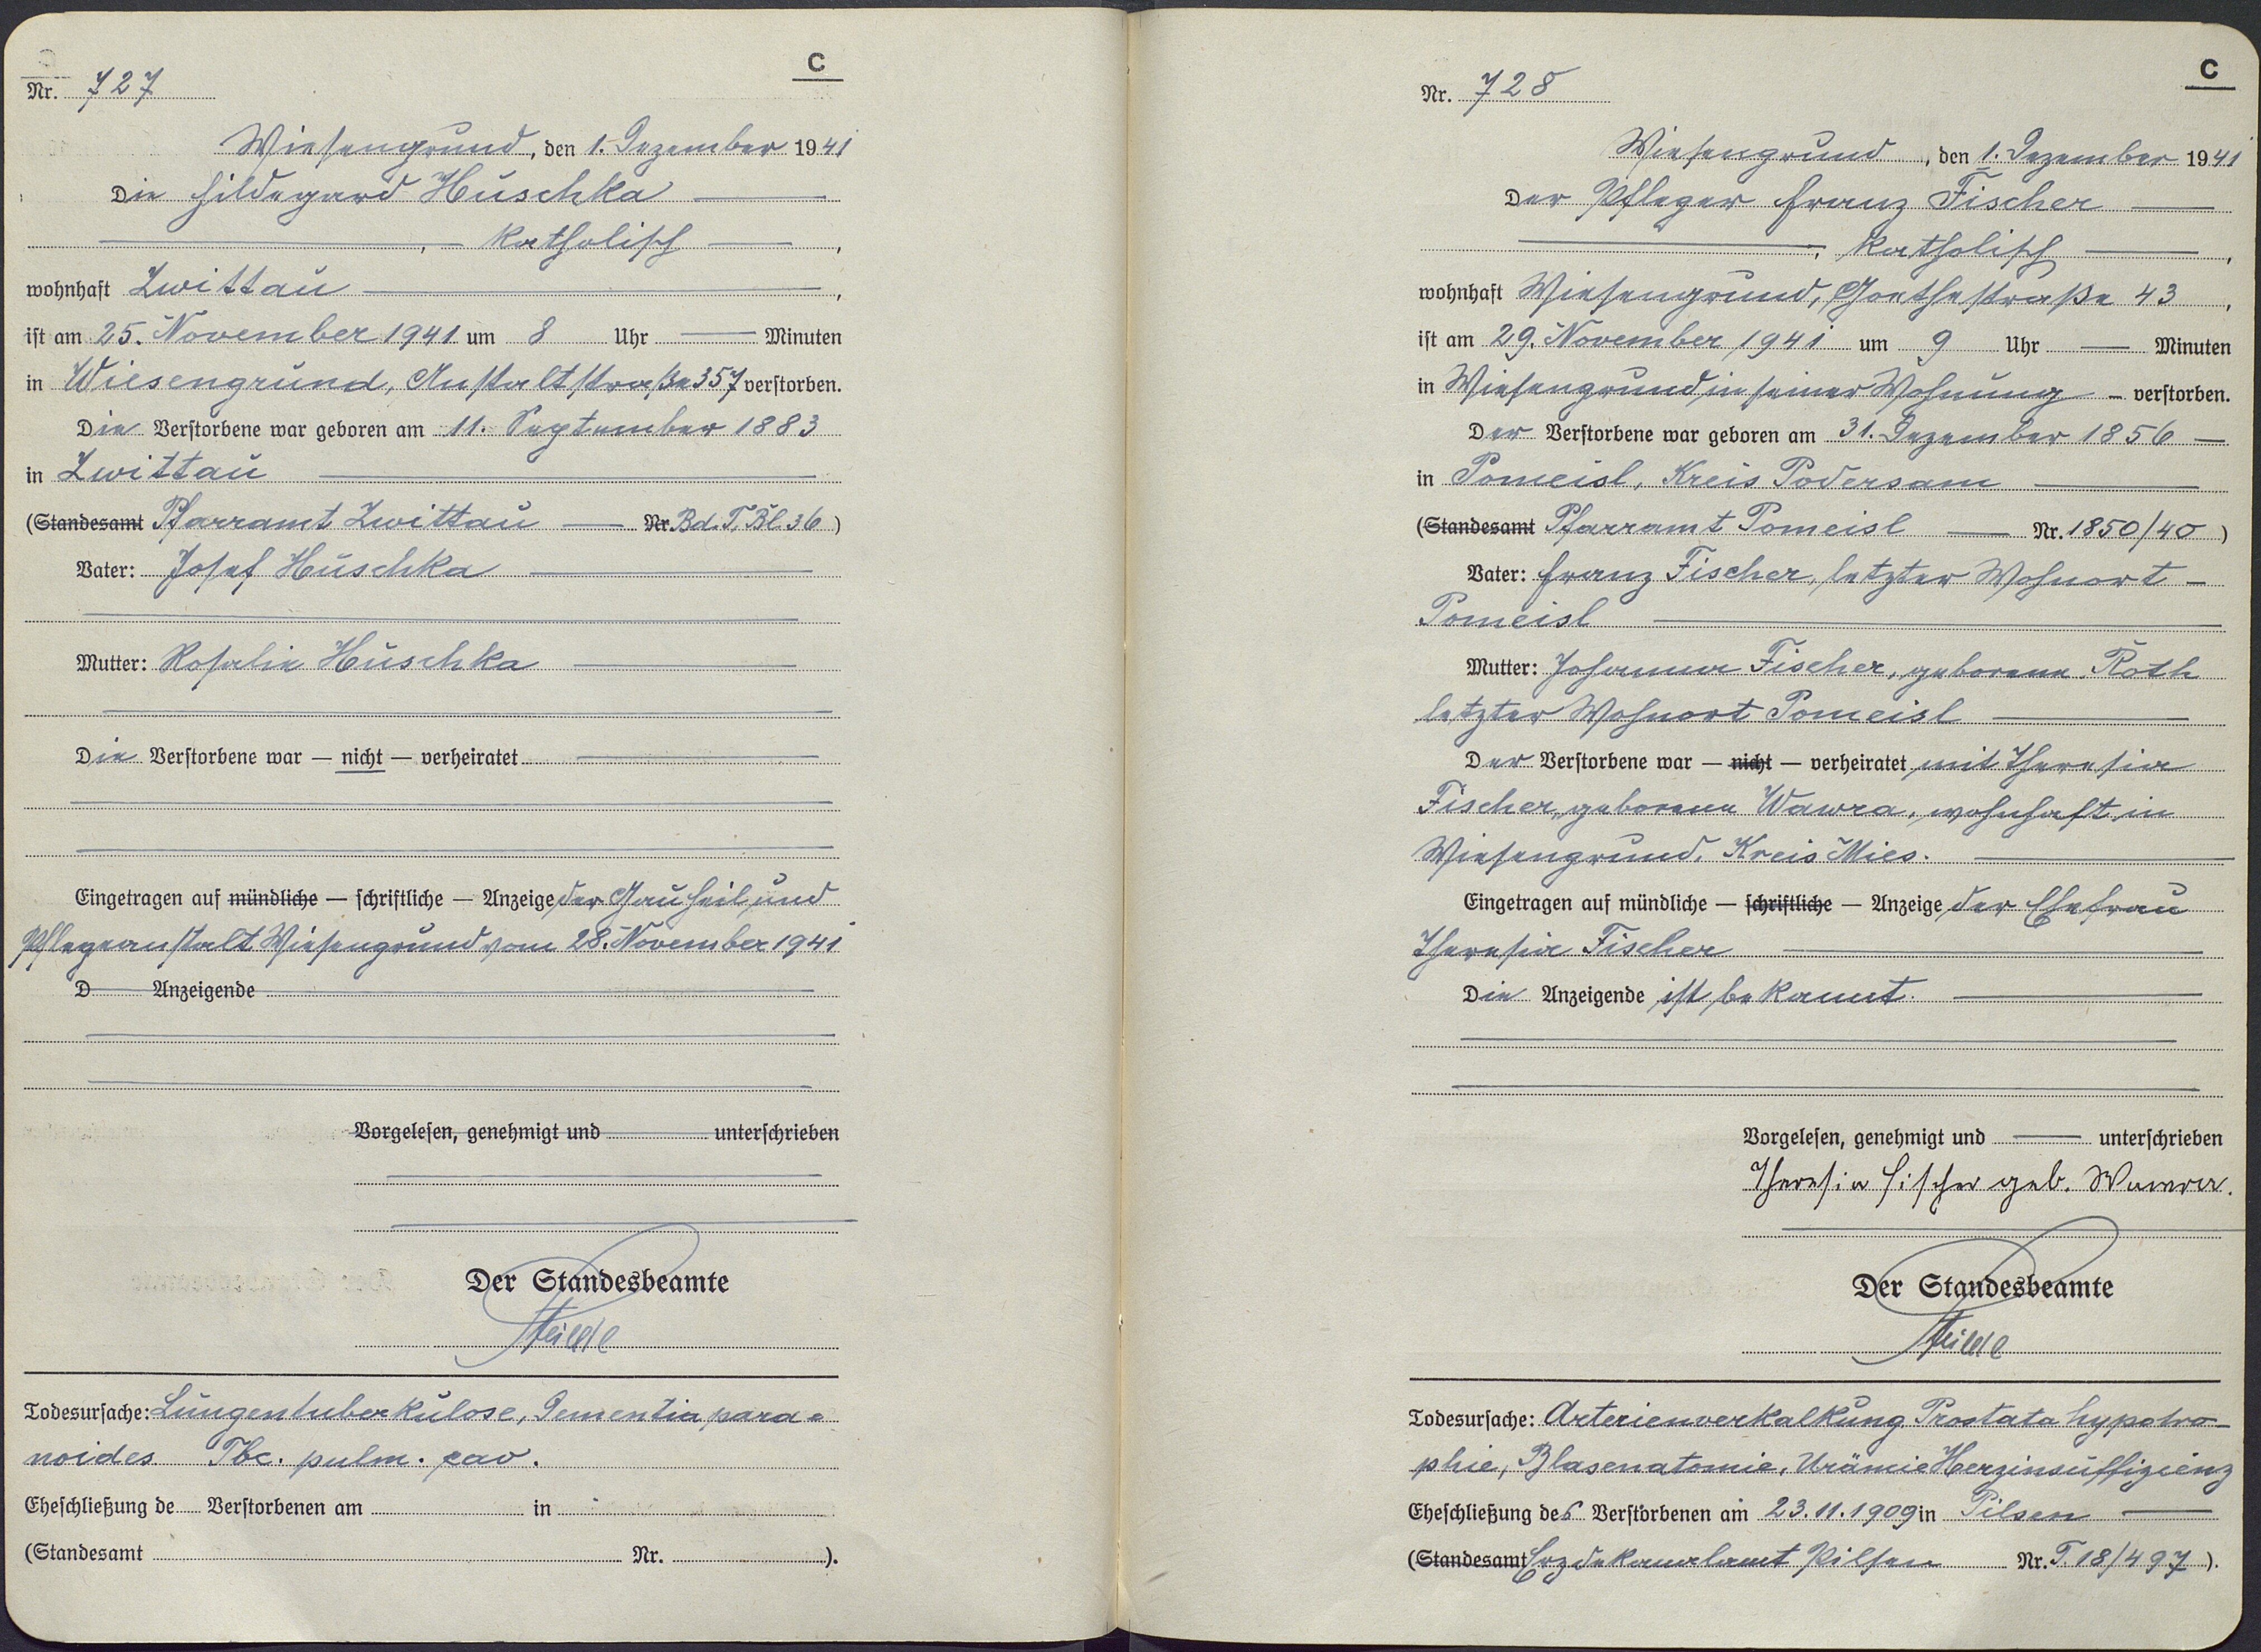 C
Nr. 727
Wiesengrund, den 1. Dezember 1941
Die Hildegard Huschka
, katholisch ,
wohnhaft Zwittau ,
ist am 25. November 1941 um 8 Uhr Minuten
in Wiesengrund, Anstaltstraße 357 verstorben.
Die Verstorbene war geboren am 11. September 1883
in Zwittau
(Standesamt Pfarramt Zwittau Nr. Bd. T. Bl. 36 )
Vater: Josef Huschka
Mutter: Rosalie Huschka
Die Verstorbene war — nicht — verheiratet
Eingetragen auf mündliche — schriftliche — Anzeige der Gau Heil und
Pflegeanstalt Wiesengrund vom 28. November 1941
D Anzeigende
Vorgelesen, genehmigt und unterschrieben
Der Standesbeamte
Todesursache: Lungentuberkulose, Dementia para-
noides Tbc. pulm. cav.
Eheschließung de Verstorbenen am in
(Standesamt Nr. ).
C
Nr. 728
Wiesengrund, den 1. Dezember 1941
Der Pfleger Franz Fischer
, katholisch ,
wohnhaft Wiesengrund, Goethestraße 43 ,
ist am 29. November 1941 um 9 Uhr — Minuten
in Wiesengrund in seiner Wohnung – verstorben.
Der Verstorbene war geboren am 31. Dezember 1856 —
in Pomeisl, Kreis Podersam
(Standesamt Pfarramt Pomeisl Nr. 1850/40 )
Vater: Franz Fischer, letzter Wohnort –
Pomeisl
Mutter: Johanna Fischer, geborene Roth
letzter Wohnort Pomeisl
Der Verstorbene war — nicht — verheiratet mit Theresia
Fischer, geborene Wawra, wohnhaft in
Wiesengrund, Kreis Mies.
Eingetragen auf mündliche — schriftliche — Anzeige der Ehefrau
Theresia Fischer
Die Anzeigende ist bekannt.
Vorgelesen, genehmigt und unterschrieben
Theresia Fischer geb. Wawra.
Der Standesbeamte
Todesursache: Arterienverkalkung Prostata hypotro-
phie, Blasenatomie, Urämie Herzinsuffizienz
Eheschließung des Verstorbenen am 23.11.1909 in Pilsen
(Standesamt Erzdekanalamt Pilsen Nr. T. 18/497 ).